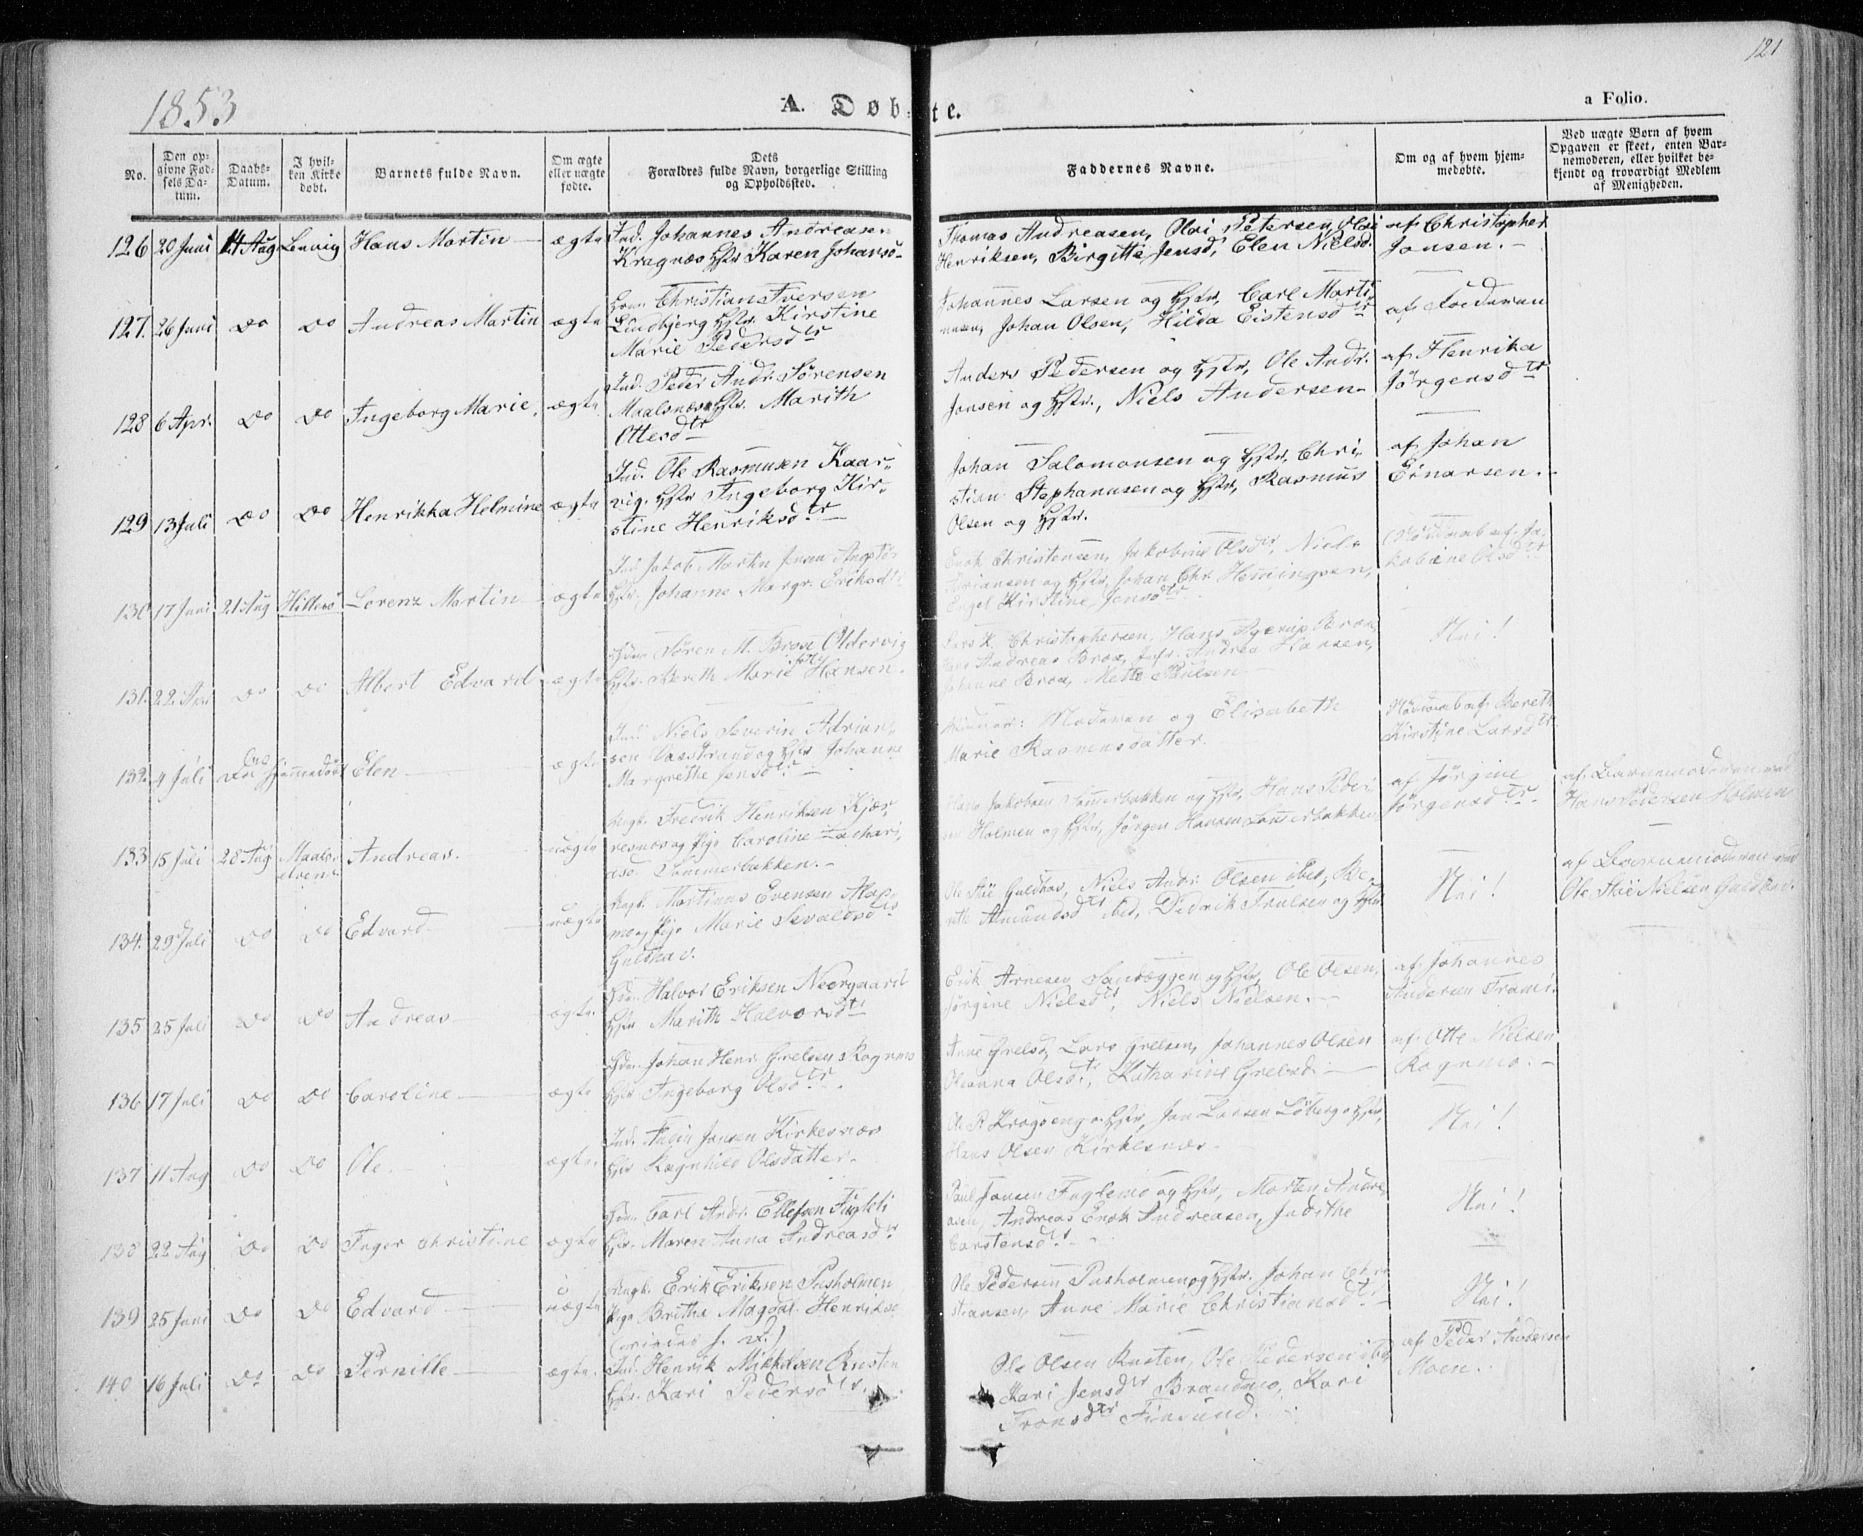 121
1853
A. Døbte.
a Folio.
No.
Den op-
givne Fød-
sels Da-
tum.
Daabs-
Datum.
I hvil-
ken Kirke
døbt.
Barnets fulde Navn.
Om ægte
eller uægte
fødte.
Dets
Forældres fulde Navn, borgerlige Stilling
og Opholdssted.
Faddernes Navne.
Om og af hvem hjem-
medøbte.
Ved uægte Børn af hvem
Opgaven er skeet, enten Bar-
nemoderen, eller hvilket be-
kjendt og troværdigt Medlem
af Menigheden.
126 20 Juni 14 Aug Lenvig Hans Martin ægte
Ind. Johannes Andreasen
Kragnæs Hstr Karen Johansd
Thomas Andreasen, Olai Petersen, Olai
Henriksen, Birgitte Jensd, Elen Nielsd.
af Christopher
Jonsen.
127. 26 Juni Do Do Andreas Martin ægte
Christian Iversen
Lindbjerg Hstr. Kirstine
Marie Pedersdtr
Johannes Larsen og Hstr, Carl Marti
nusen, Johan Olsen, Hilda Eistensdtr
af Faderen
128 6 Apr. Do Do Ingeborg Marie, ægte
Ind. Peder Andr. Sörensen
Maalsnæs Hstr. Marith
Ottesdtr
Anders Pedersen og Hstr, Ole Andr.
Jonsen og Hstr., Niels Andersen
af Henrika
Jörgensdtr
129 13 Juli Do Do Henrikka Helmine ægte
Ind. Ole Rasmusen Kaar-
vig. Hstr Ingeborg Kir-
stine Henriksdtr
Johan Salomonsen og Hstr, Chri-
stian Stephanusen og Hstr, Rasmus
Olsen og Hstr.
af Johan
Einarsen.
130 17 Juni 21. Aug Hillesö Lorenz Martin ægte
Ind. Jakob Martin Jensen
Hstr. Johanne Margr. Eriksdtr
Enok Christensen, Jakobine Olsdtr, Niels
Adriansen og Hstr, Johan Chr. Hemmingsen,
Engel Kirstine Jensdtr
Nöddaab af Ja-
kobine Olsdtr
131. 22. Apr Do Do Albert Edvard ægte
Søren M. Brox Oldervig
Hstr. Berith Marie Hansen.
Lars K. Christophersen, Hans Brox,
Jens Andreas Brox, Andrea Hansen,
Johanne Brox, Mette Poulsen
Nei!
132. 4 Juli Do Hjemmedöbt Elen ægte
Ind. Niels Severin Adrian-
sen Vasstrand og Hstr Johanne
Margrethe Jensdtr
Moderen og Elisabeth
Marie Rasmusdatter.
Nöddaab af Bereth
Kirstine Larsdtr
133 15 Juli 28 Aug Maals-
elven Andreas. uægte
Ungk. Fredrik Henriksen Kjær-
resnes og Pige Caroline Zachari-
asd. Sommerbakken.
Hans Jakobsen Sommerbakken og Hstr, Hans Peder-
sen Holmen og Hstr, Jörgen Hansen Sommerbakken
af Jörgine
Jörgensdtr.
af Barnemoderen ved
Hans Pedersen Holmen
134. 29 Juli Do Do Edvard uægte
Ungk. Martinus Evensen
mo og Pige Marie Sivaldsdtr
Guldhav.
Ole Skie Guldhav, Niels Andr. Olsen ibid, Be-
reth Amundsdtr ibid, Didrik Trulsen og Hstr
Nei!
af Barnemoderen ved
Ole Skie Nielsen Guldhav.
135 25 Juli Do Do Andreas ægte.
Halvor Eriksen Neergaard
Hstr Marith Halvorsdtr
Erik Arnesen og Hstr, Ole Olsen,
Jörgine Nielsdtr, Niels Nielsen.
af Johannes
Andersen
136 17 Juli Do Do Caroline ægte
Johan Henr. Grelsen Rognmo
Hstr Ingeborg Olsdtr.
Anne Grelsd, Lars Grelsen, Johannes Olsen
Oleanna Olsdtr, Katharina Grelsd.
af Otte Nielsen
Rognmo.
137 11 Aug Do Do Ole. ægte.
Ind. Jonsen Kirkesnæs
Hstr Ragnhild Olsdatter.
Ole P. Krogseng og Hstr, Jon Larsen Löberg og Hstr,
Hans Olsen Kirkesnæs.
Nei!
138 22 Aug Do Do Inger Christine ægte
Carl Andr. Ellefsen Fugleli
Hstr. Maren Anna Andreasdtr
Paul Jonsen Fuglemo og Hstr, Morten Andre-
asen, Andreas Enok Andreasen, Judithe
Carstensdtr
Nei!
139 25 Juni Do Do Edvard uægte
Ungk. Erik Eriksen Pasholmen
Pige Britha Magdal. Henriksd
Ole Pedersen Pasholmen og Hstr. Johan Chri
stiansen, Anne Marie Christiansdtr
Nei!
140 16 Juli Do Do Pernille ægte.
Ind. Henrik Mikkelsen Rusten
Hstr. Kari Pedersdtr.
Ole Olsen Rusten, Ole Pedersen ibid
Kari Jensdtr Brandmo, Kari
Tronsdtr Finsund.
af Peder Andersen
Moen.